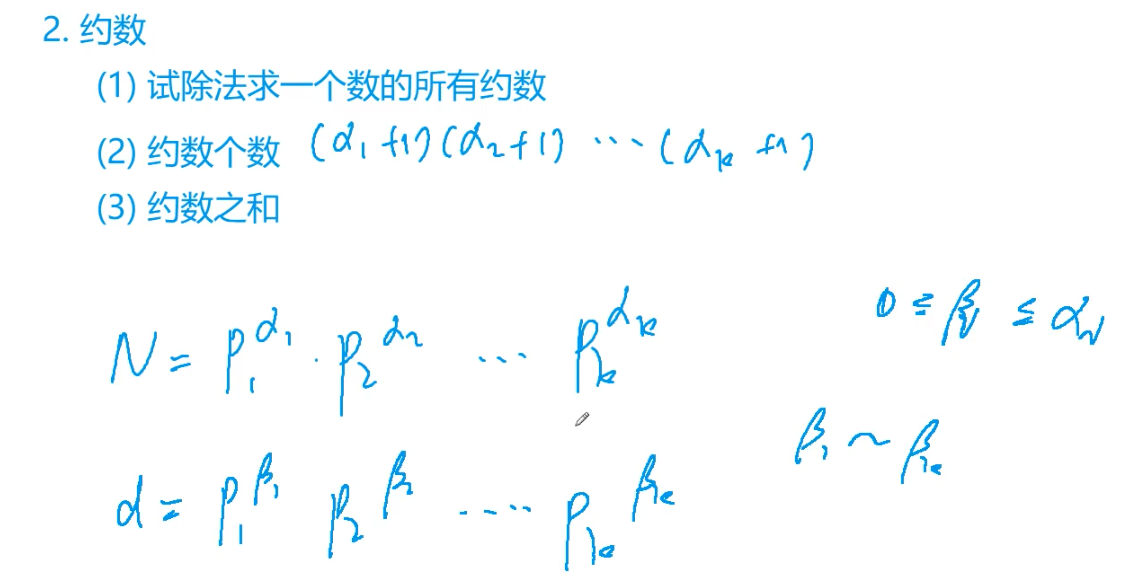 2. 约数
(1) 试除法求一个数的所有约数
(2) 约数个数 (α₁+1)(α₂+1) ⋯ (αₖ+1)
(3) 约数之和
0 ≤ βᵢ ≤ αᵢ
N = P₁^α₁ · P₂^α₂ ⋯ Pₖ^αₖ
β₁ ~ βₖ
d = P₁^β₁ P₂^β₂ ⋯⋯ Pₖ^βₖ